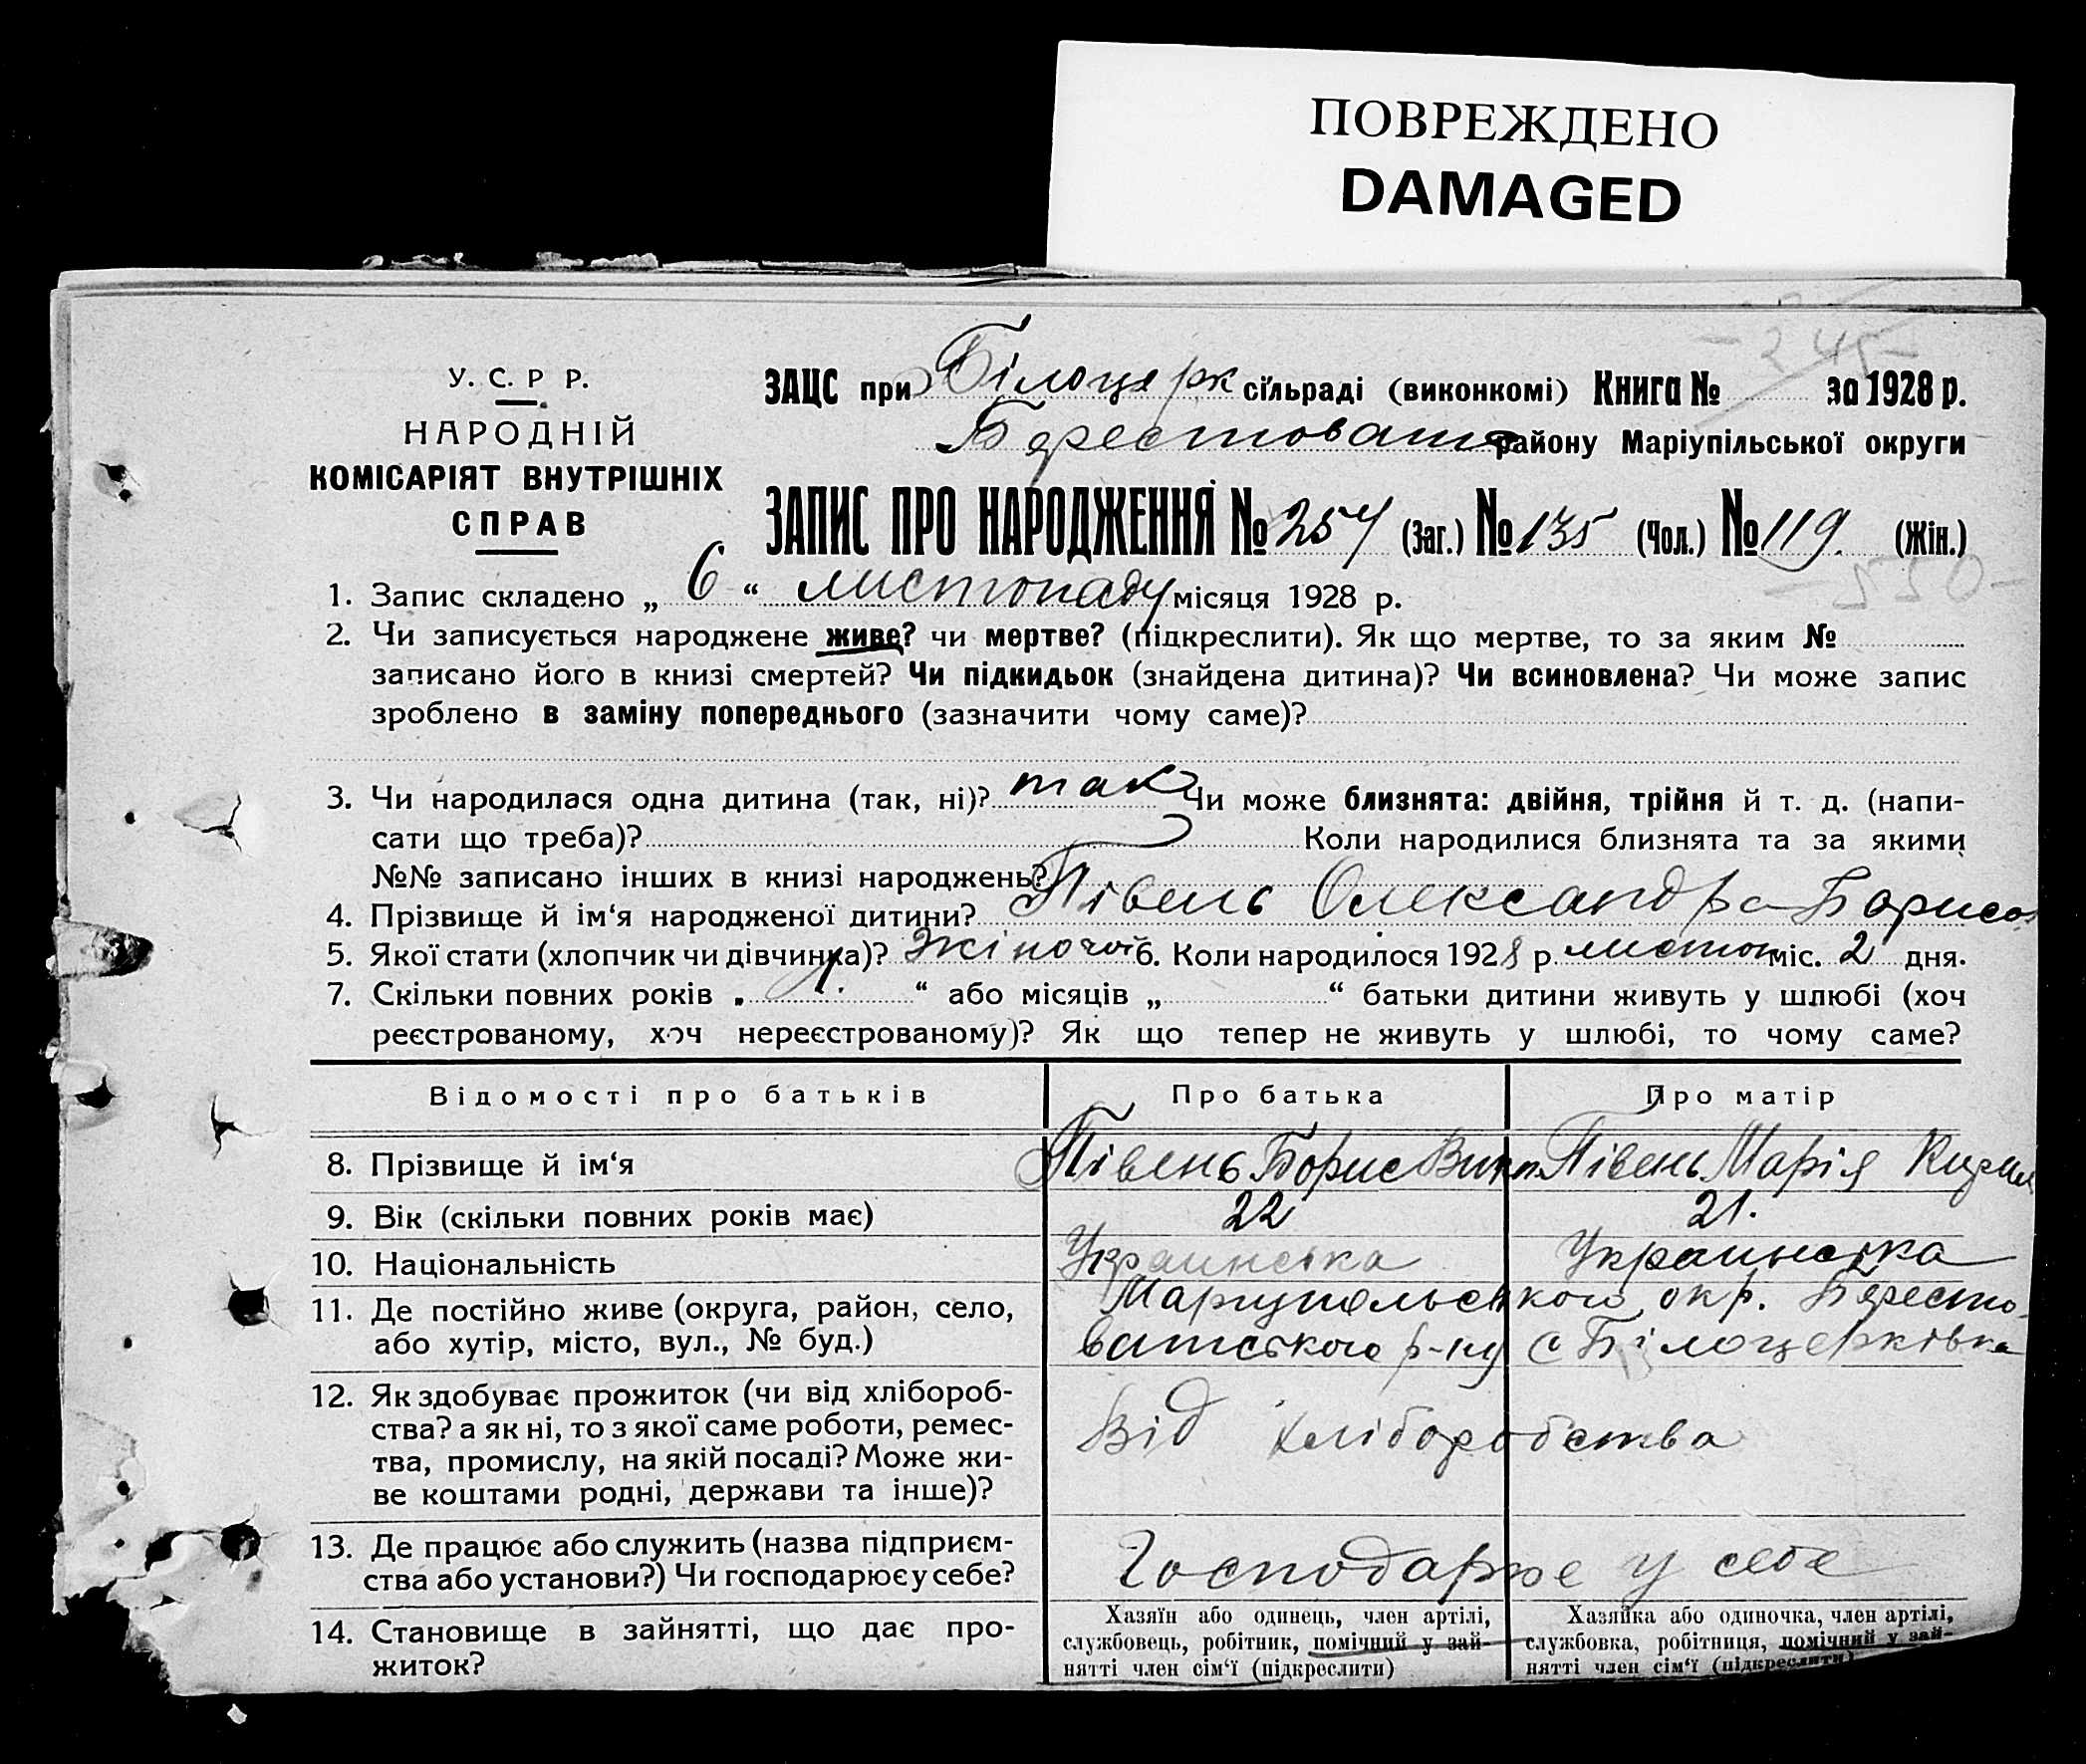 ПОВРЕЖДЕНО
DAMAGED
- 245 -
У. С. Р Р.
НАРОДНІЙ
КОМІСАРІЯТ ВНУТРІШНІХ
СПРАВ
ЗАЦС при Білоцерк сільраді (виконкомі) Книга № за 1928 р.
Берестоват району Маріупільської округи
ЗАПИС ПРО НАРОДЖЕННЯ № 254 (Заг.) № 135 (Чол.) № 119. (Жін.)
- 550 -
1. Запис складено „ 6 “ листопаду місяця 1928 р.
2. Чи записується народжене живе? чи мертве? (підкреслити). Як що мертве, то за яким №
записано його в книзі смертей? Чи підкидьок (знайдена дитина)? Чи всиновлена? Чи може запис
зроблено в заміну попереднього (зазначити чому саме)?
3. Чи народилася одна дитина (так, ні)? так Чи може близнята: двійня, трійня й т. д. (напи-
сати що треба)? Коли народилися близнята та за якими
№№ записано інших в книзі народжень?
4. Прізвище й ім‘я народженої дитини? Півень Олександра Борисов
5. Якої стати (хлопчик чи дівчинка)? Жіночої 6. Коли народилося 1928 р. листоп міс. 2 дня.
7. Скільки повних років „ 1. “ або місяців „ “ батьки дитини живуть у шлюбі (хоч
реєстрованому, хоч нереєстрованому)? Як що тепер не живуть у шлюбі, то чому саме?
Відомості про батьків Про батька Про матір
8. Прізвище й ім‘я Півень Борис Півень Марія Кирил
9. Вік (скільки повних років має) 22 21.
10. Національність Украинська Украинська
11. Де постійно живе (округа, район, село, Маріупольського окр. Бересто-
або хутір, місто, вул., № буд.) ватського р-ну с Білоцерківка
12. Як здобуває прожиток (чи від хлібороб-
ства? а як ні, то з якої саме роботи, ремес- Від хліборобства
тва, промислу, на якій посаді? Може жи-
ве коштами родні, держави та інше)?
13. Де працює або служить (назва підприєм- Господарює у себе
ства або установи?) Чи господарює у себе?
14. Становище в зайнятті, що дає про-
житок?
Хазяїн або одинець, член артілі,
службовець, робітник, помічний у зай-
нятті член сім‘ї (підкреслити)
Хазяйка або одиночка, член артілі,
службовка, робітниця, помічний у зай-
нятті член сім‘ї (підкреслити)